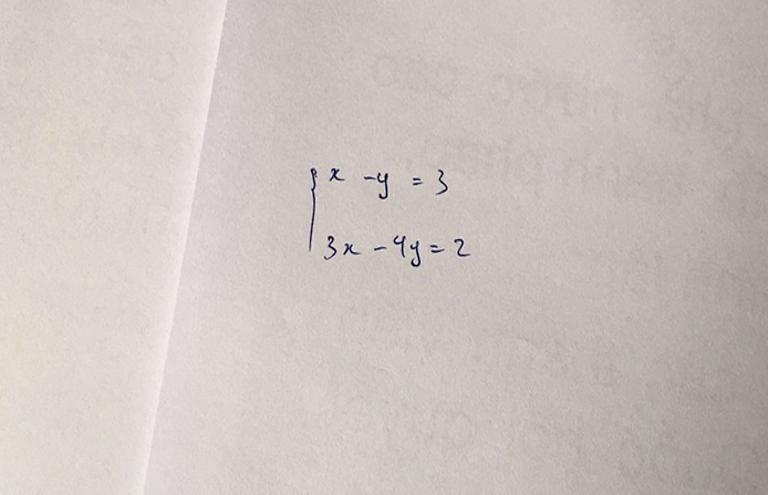 x - y = 3
3x - 4y = 2